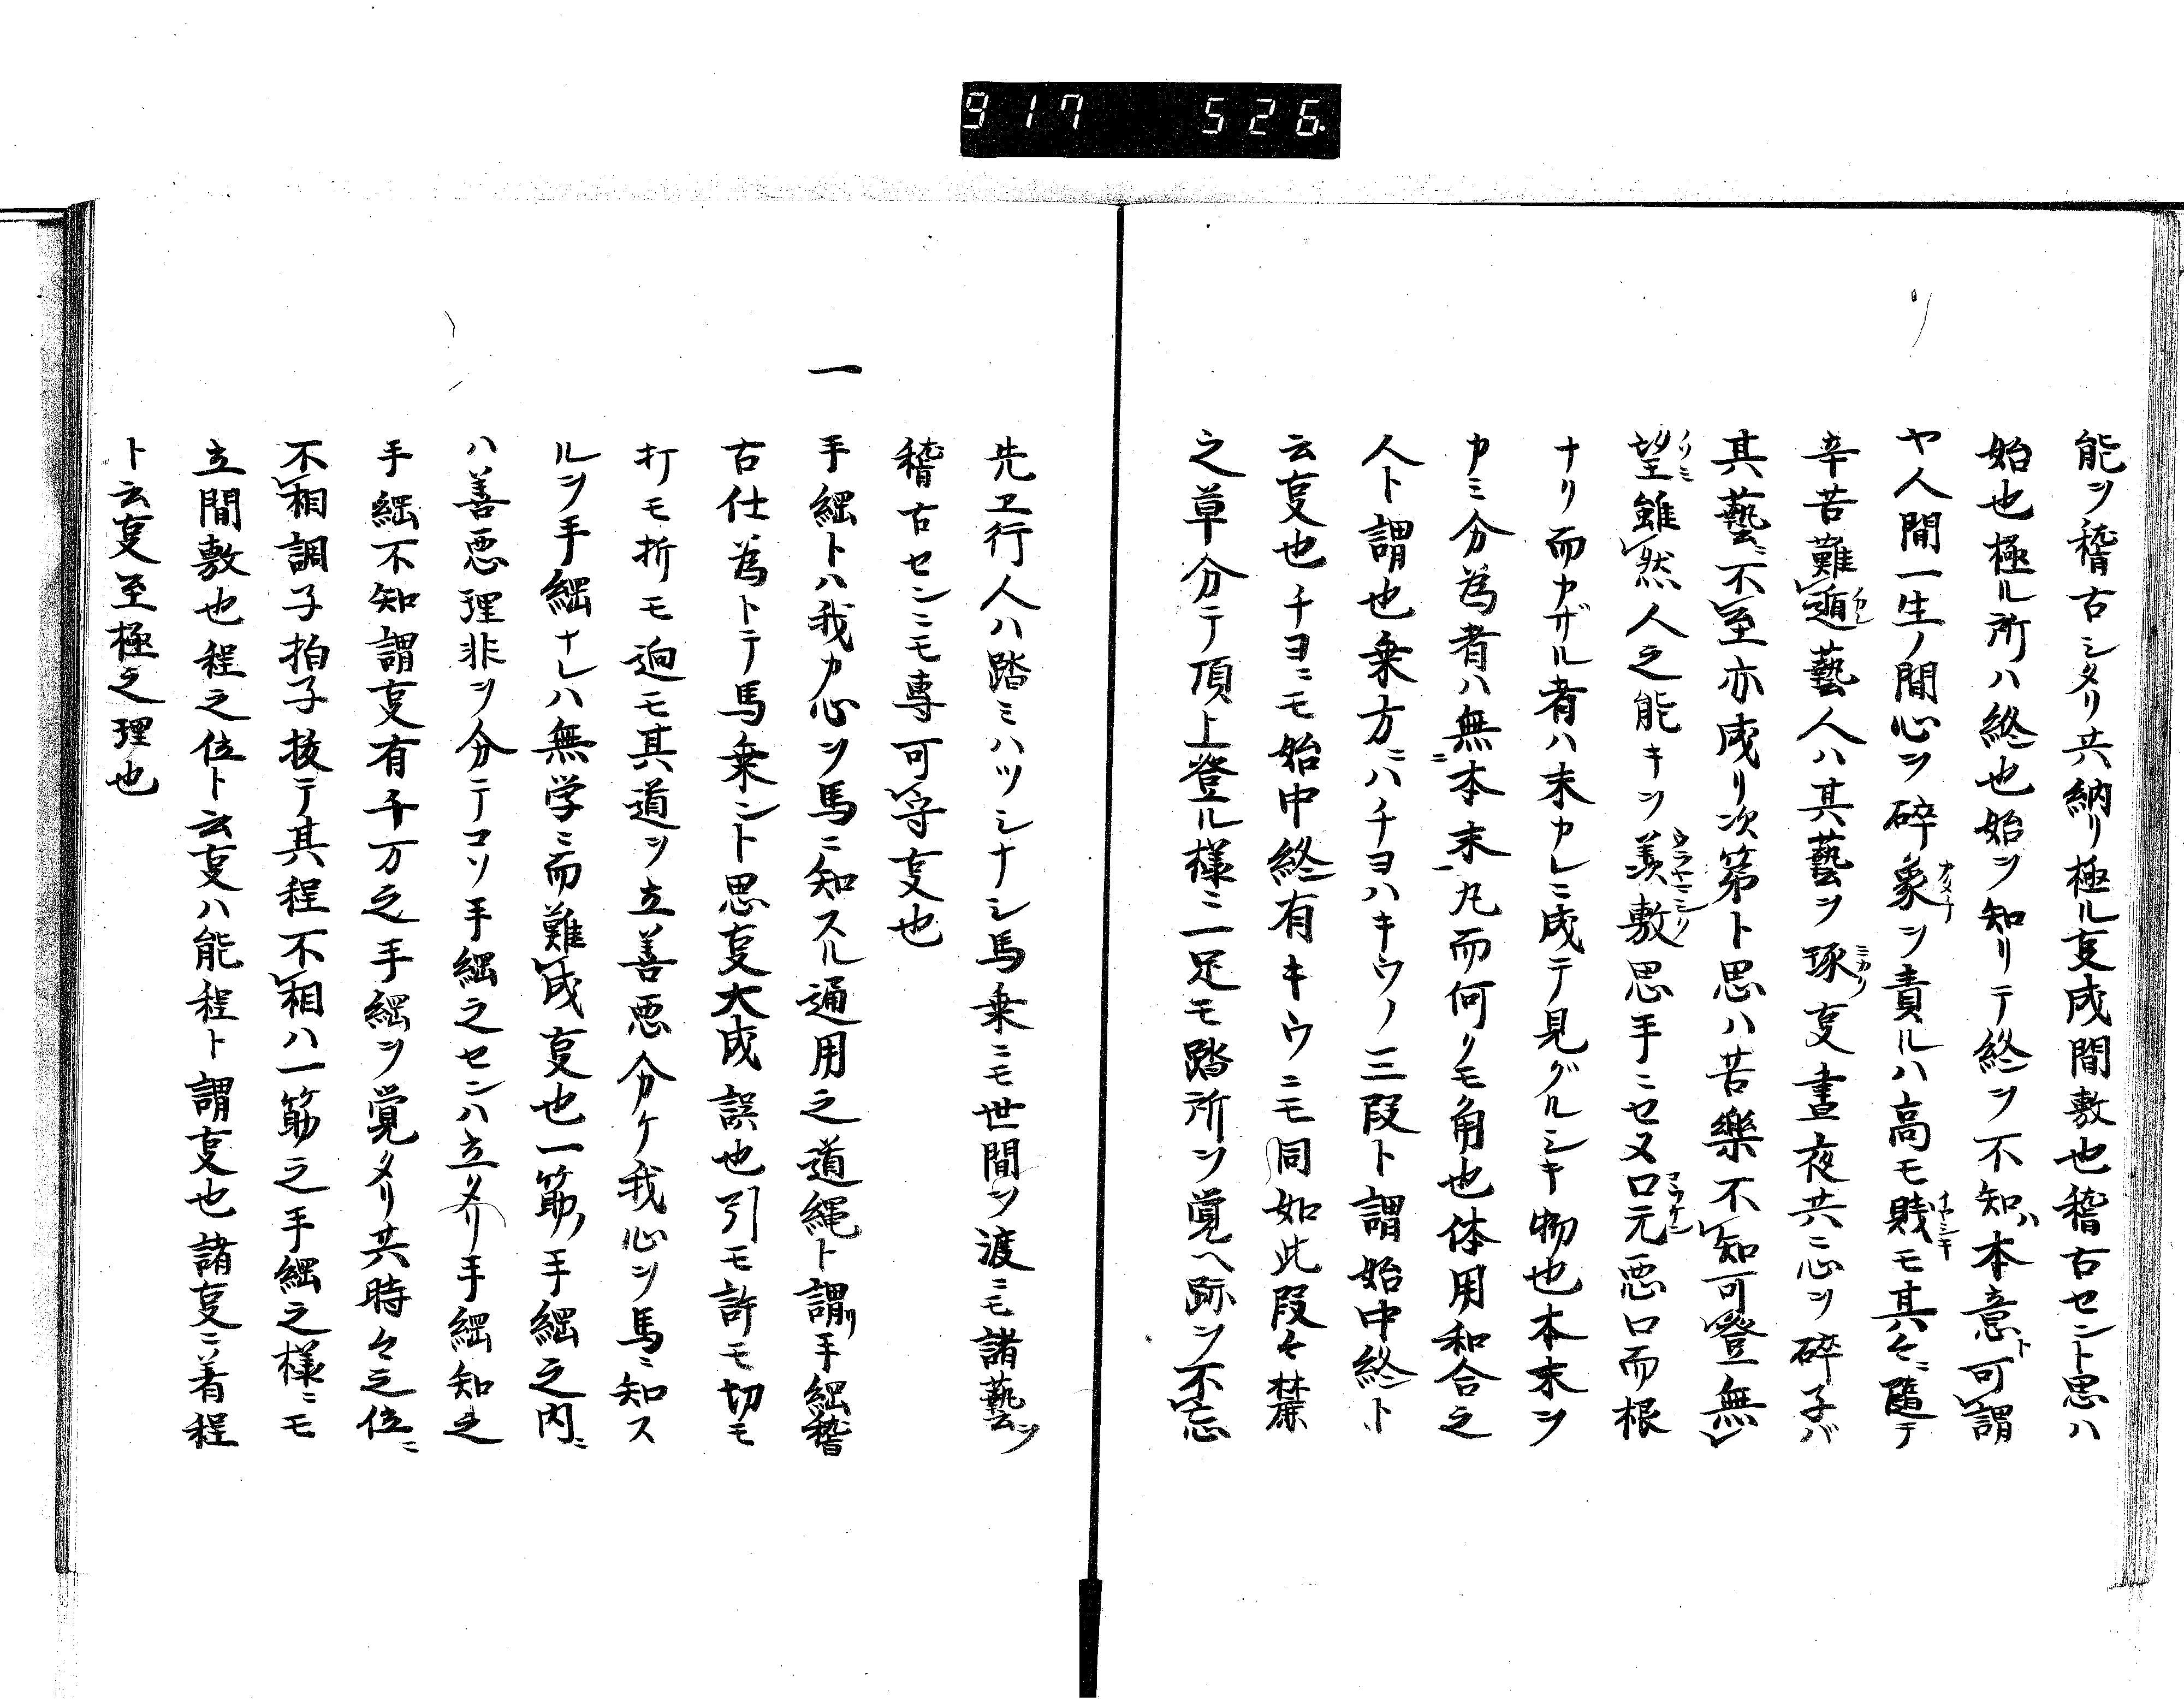 917 526
能ヲ稽古シタリ共納リ極ル事成間敷也稽古セント思ハ
始也極ル所ハ終也始ヲ知リテ終ヲ不知ハ本意ト可謂
ヤ人間一生ノ間心ヲ碎象ヲ責ルハ高モ賎モ其々ニ隨テ
辛苦難遁藝人ハ其藝ヲ琢事晝夜共ニ心ヲ碎子バ
其藝ニ不至亦成リ次第ト思ハ苦樂不知可登無
望雖然人之能キヲ羨敷思手ニセヌ口元悪口而根
ナリ而カザル者ハ末カレニ成テ見グルシキ物也本末ヲ
カミ分為者ハ無本末丸而何クモ角也体用和合之
人ト謂也乗方ニハチヨハキウノ三段ト謂始中終ト
云事也チヨニモ始中終有キウニモ同如此段々禁
之草分テ頂上登ル様ニ一足モ踏所ヲ覚ヘ跡ヲ不忘
先エ行人ハ踏ミハツシナシ馬乗ニモ世間ヲ渡ニモ諸藝ヲ
稽古センニモ専可守事也
一 手綱トハ我カ心ヲ馬ニ知スル通用之道縄ト謂リ手綱稽
古仕為トテ馬乗ント思事大成誤也引モ許モ切モ
打モ折モ廻モ其道ヲ立善悪分ケ我心ヲ馬ニ知ス
ルヲ手綱ナレハ無学ニ而難成事也一筋ノ手綱之内ニ
ハ善悪理非ヲ分テコソ手綱之センハ立メリ手綱知之
手綱不知謂事有千万之手綱ヲ覚タリ共時々之位ニ
不相調子拍子抜テ其程不相ハ一筋之手綱之様ニモ
立間敷也程之位ト云事ハ能程ト謂事也諸事ニ着程
ト云事至極之理也